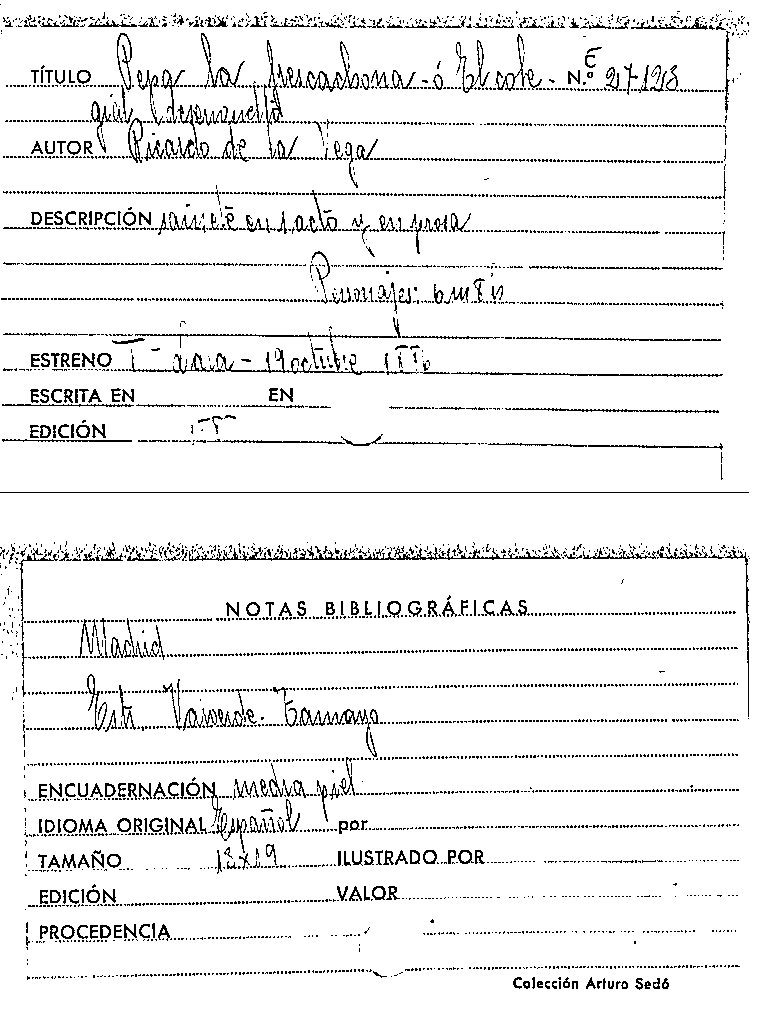 TÍTULO Pepa la frescachona - ó El cole- N.º E 27-123
gial desenvuelto
AUTOR Ricardo de la Vega
DESCRIPCIÓN sainete en 1 acto y en prosa
Personajes: 6 m 8 h
ESTRENO Tº Lara - 19 octubre 1886
ESCRITA EN EN
EDICIÓN
NOTAS BIBLIOGRÁFICAS
Madrid
Valverde. Tamayo
ENCUADERNACIÓN media piel
IDIOMA ORIGINAL Español por
TAMAÑO 13x19 ILUSTRADO POR
EDICIÓN VALOR
PROCEDENCIA
Colección Arturo Sedó